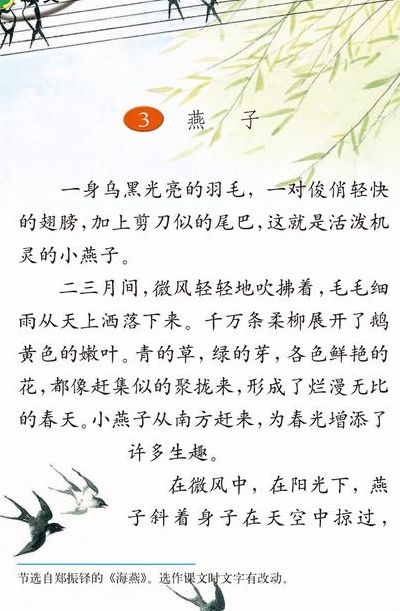 3 燕子
一身乌黑光亮的羽毛，一对俊俏轻快
的翅膀，加上剪刀似的尾巴，这就是活泼机
灵的小燕子。
二三月间，微风轻轻地吹拂着，毛毛细
雨从天上洒落下来。千万条柔柳展开了鹅
黄色的嫩叶。青的草，绿的芽，各色鲜艳的
花，都像赶集似的聚拢来，形成了烂漫无比
的春天。小燕子从南方赶来，为春光增添了
许多生趣。
在微风中，在阳光下，燕
子斜着身子在天空中掠过，
节选自郑振铎的《海燕》。选作课文时文字有改动。